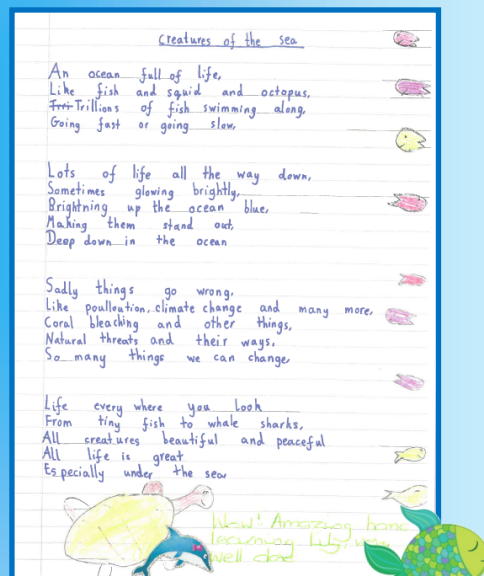 Creatures of the sea
An ocean full of life,
Like fish and squid and octopus,
Tri Trillions of fish swimming along,
Going fast or going slow,
Lots of life all the way down,
Sometimes glowing brightly,
Brightning up the ocean blue,
Making them stand out,
Deep down in the ocean
Sadly things go wrong,
Like poulloution, climate change and many more,
Coral bleaching and other things,
Natural threats and their ways,
So many things we can change,
Life every where you look
From tiny fish to whale sharks,
All creatures beautiful and peaceful
All life is great
Especially under the sea
Wow! Amazing home
learning
well done